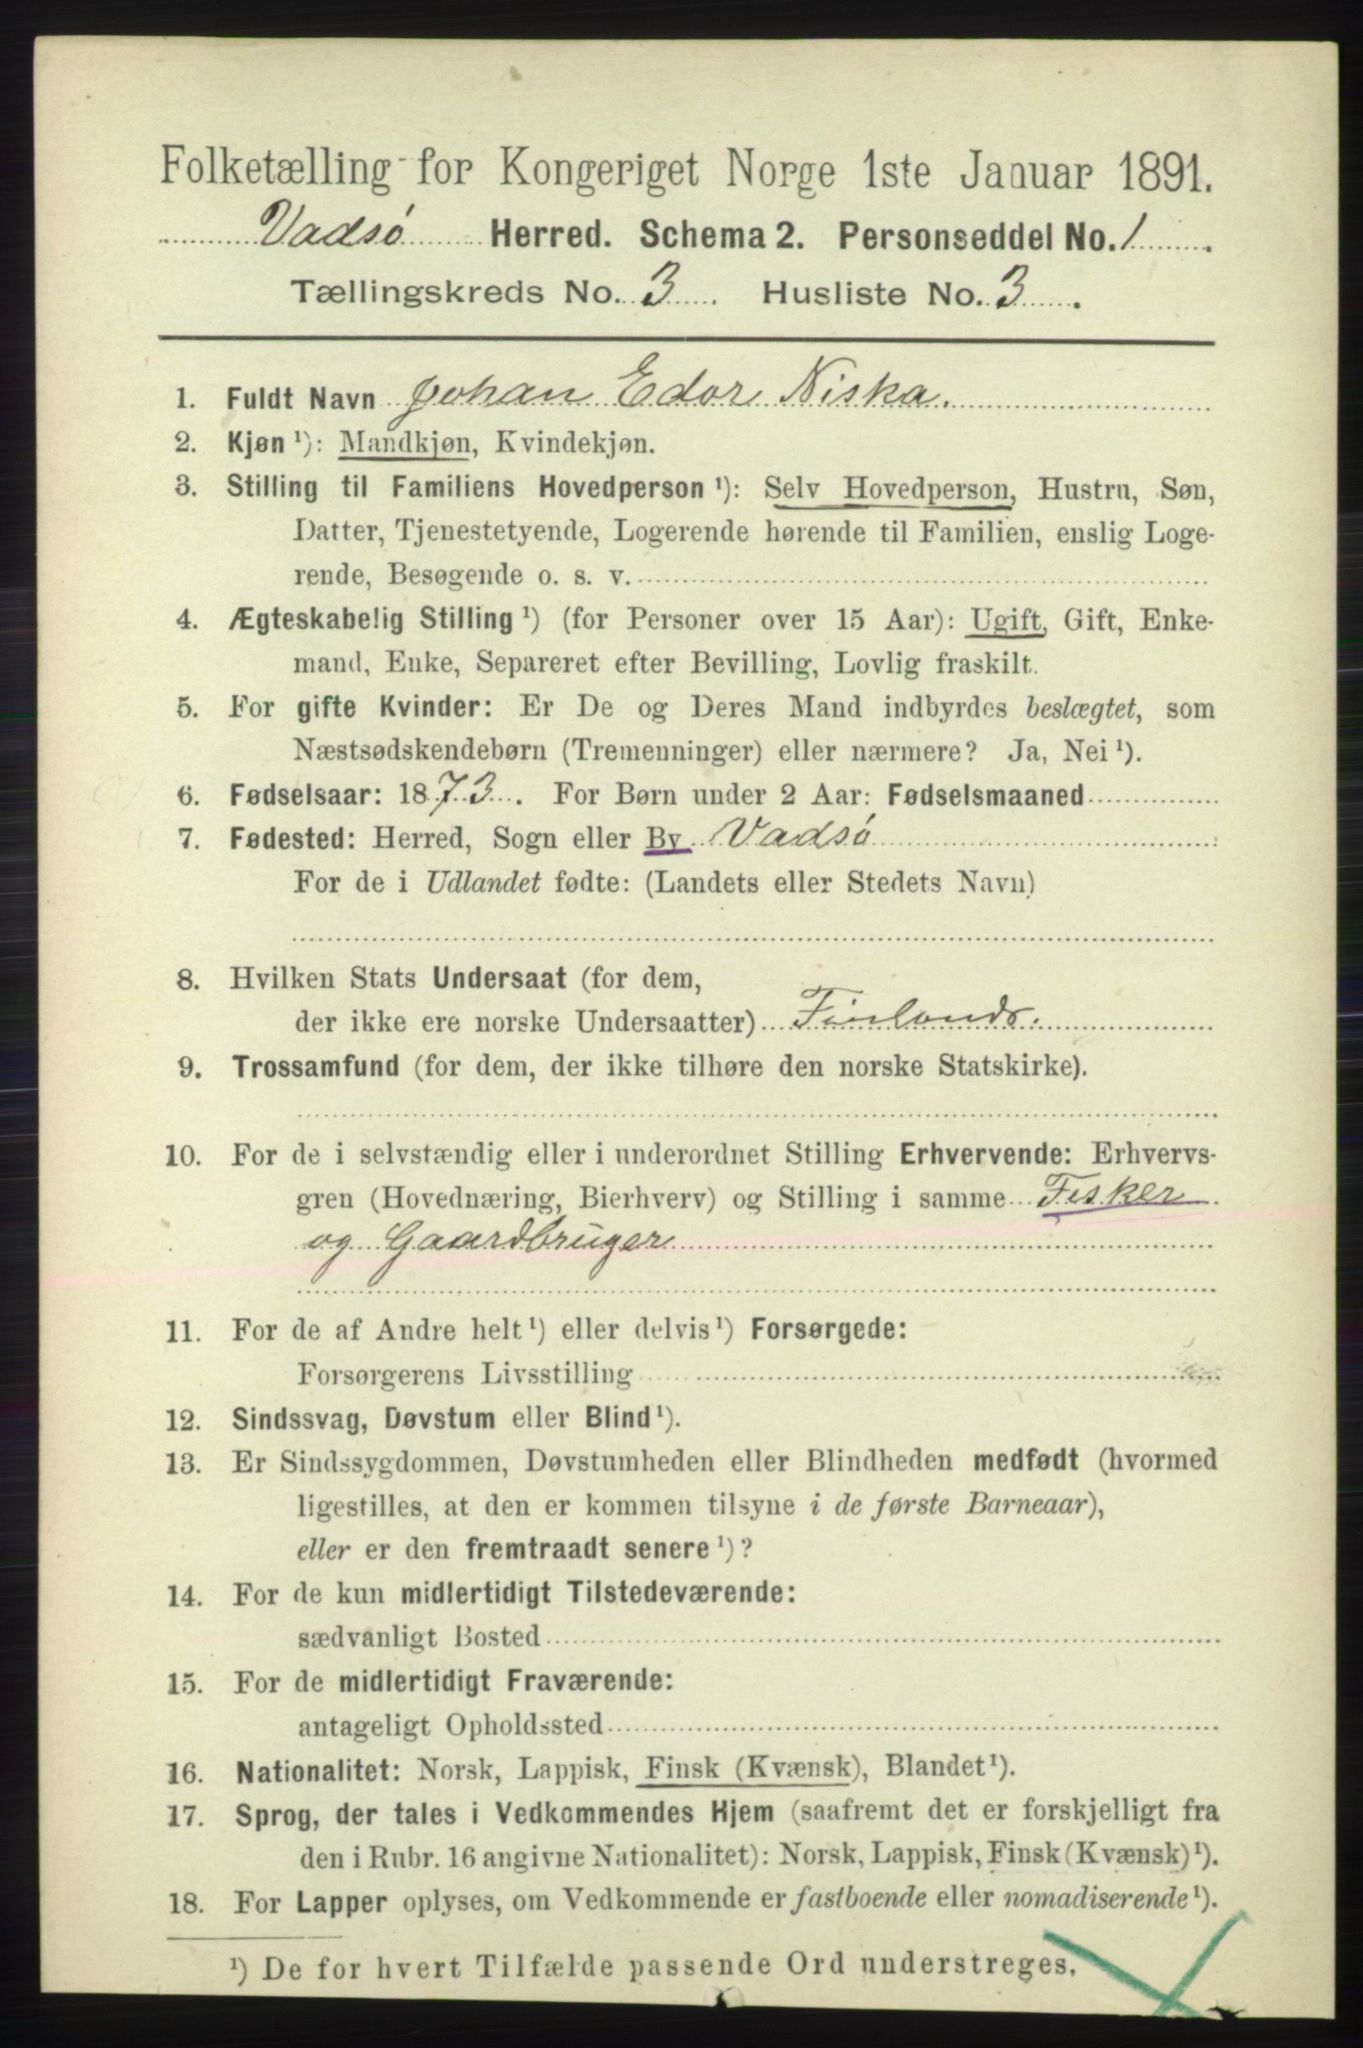 Folketælling for Kongeriget Norge 1ste Januar 1891.
Vadsø Herred. Schema 2. Personseddel No. 1.
Tællingskreds No. 3. Husliste No. 3.
1. Fuldt Navn Johan Edor Niska.
2. Kjøn ¹): Mandkjøn, Kvindekjøn.
3. Stilling til Familiens Hovedperson ¹): Selv Hovedperson, Hustru, Søn,
Datter, Tjenestetyende, Logerende hørende til Familien, enslig Loge-
rende, Besøgende o. s. v.
4. Ægteskabelig Stilling ¹) (for Personer over 15 Aar): Ugift, Gift, Enke-
mand, Enke, Separeret efter Bevilling, Lovlig fraskilt.
5. For gifte Kvinder: Er De og Deres Mand indbyrdes beslægtet, som
Næstsødskendebørn (Tremenninger) eller nærmere? Ja, Nei ¹).
6. Fødselsaar: 1873. For Børn under 2 Aar: Fødselsmaaned
7. Fødested: Herred, Sogn eller By Vadsø
For de i Udlandet fødte: (Landets eller Stedets Navn)
8. Hvilken Stats Undersaat (for dem,
der ikke ere norske Undersaatter) Finlands.
9. Trossamfund (for dem, der ikke tilhøre den norske Statskirke).
10. For de i selvstændig eller i underordnet Stilling Erhvervende: Erhvervs-
gren (Hovednæring, Bierhverv) og Stilling i samme Fisker
og Gaardbruger
11. For de af Andre helt ¹) eller delvis ¹) Forsørgede:
Forsørgerens Livsstilling
12. Sindssvag, Døvstum eller Blind ¹).
13. Er Sindssygdommen, Døvstumheden eller Blindheden medfødt (hvormed
ligestilles, at den er kommen tilsyne i de første Barneaar),
eller er den fremtraadt senere ¹)?
14. For de kun midlertidigt Tilstedeværende:
sædvanligt Bosted
15. For de midlertidigt Fraværende:
antageligt Opholdssted
16. Nationalitet: Norsk, Lappisk, Finsk (Kvænsk), Blandet ¹).
17. Sprog, der tales i Vedkommendes Hjem (saafremt det er forskjelligt fra
den i Rubr. 16 angivne Nationalitet): Norsk, Lappisk, Finsk (Kvænsk) ¹).
18. For Lapper oplyses, om Vedkommende er fastboende eller nomadiserende ¹).
¹) De for hvert Tilfælde passende Ord understreges.